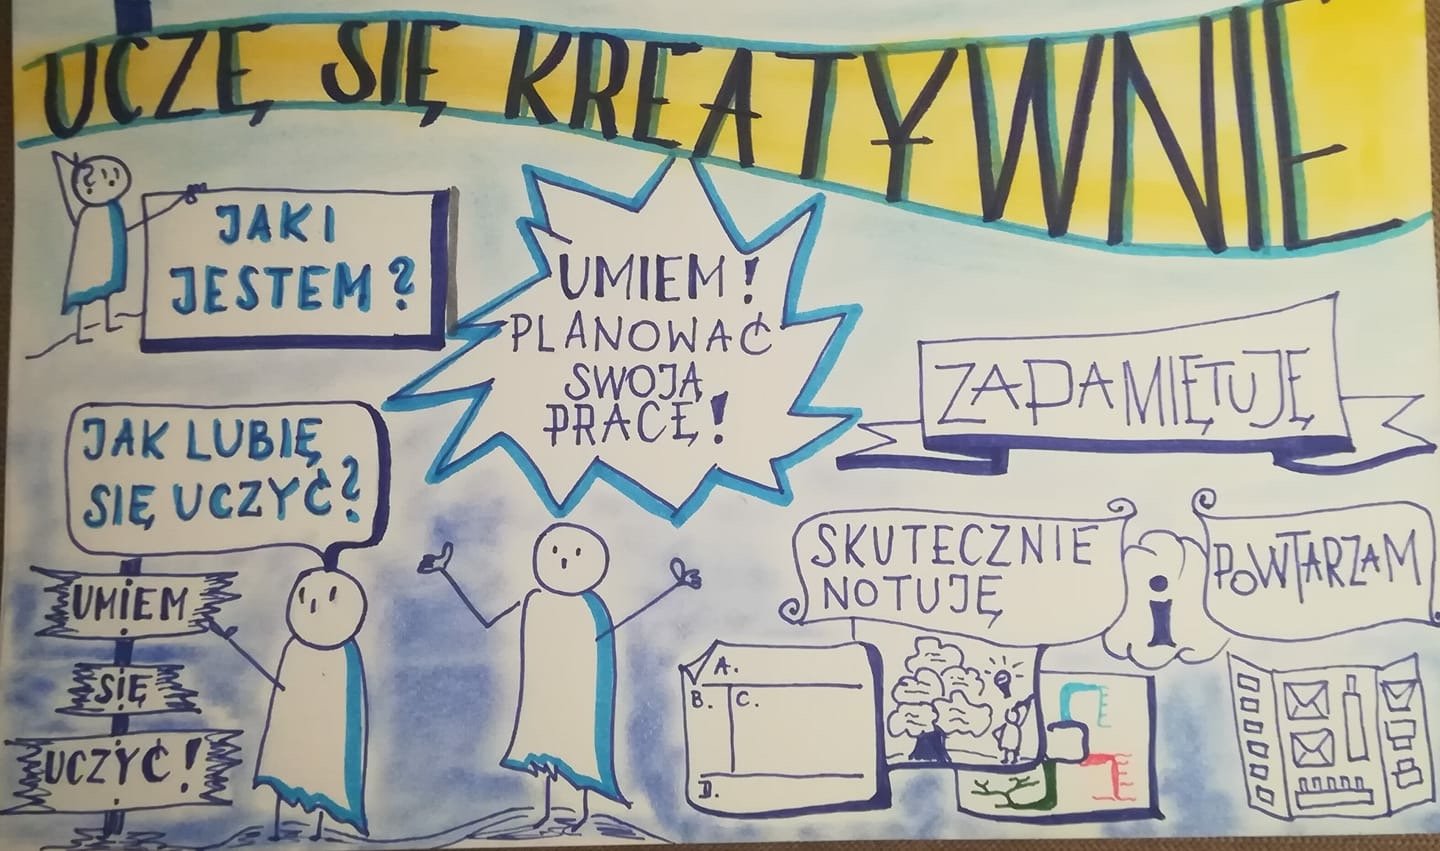 UCZĘ SIĘ KREATYWNIE
JAKI
JESTEM?
UMIEM!
PLANOWAĆ
SWOJĄ
PRACĘ!
ZAPAMIĘTUJĘ
JAK LUBIĘ
SIĘ UCZYĆ?
UMIEM
SIĘ
UCZYĆ!
SKUTECZNIE
NOTUJĘ
i
POWTARZAM
A.
B. C.
D.